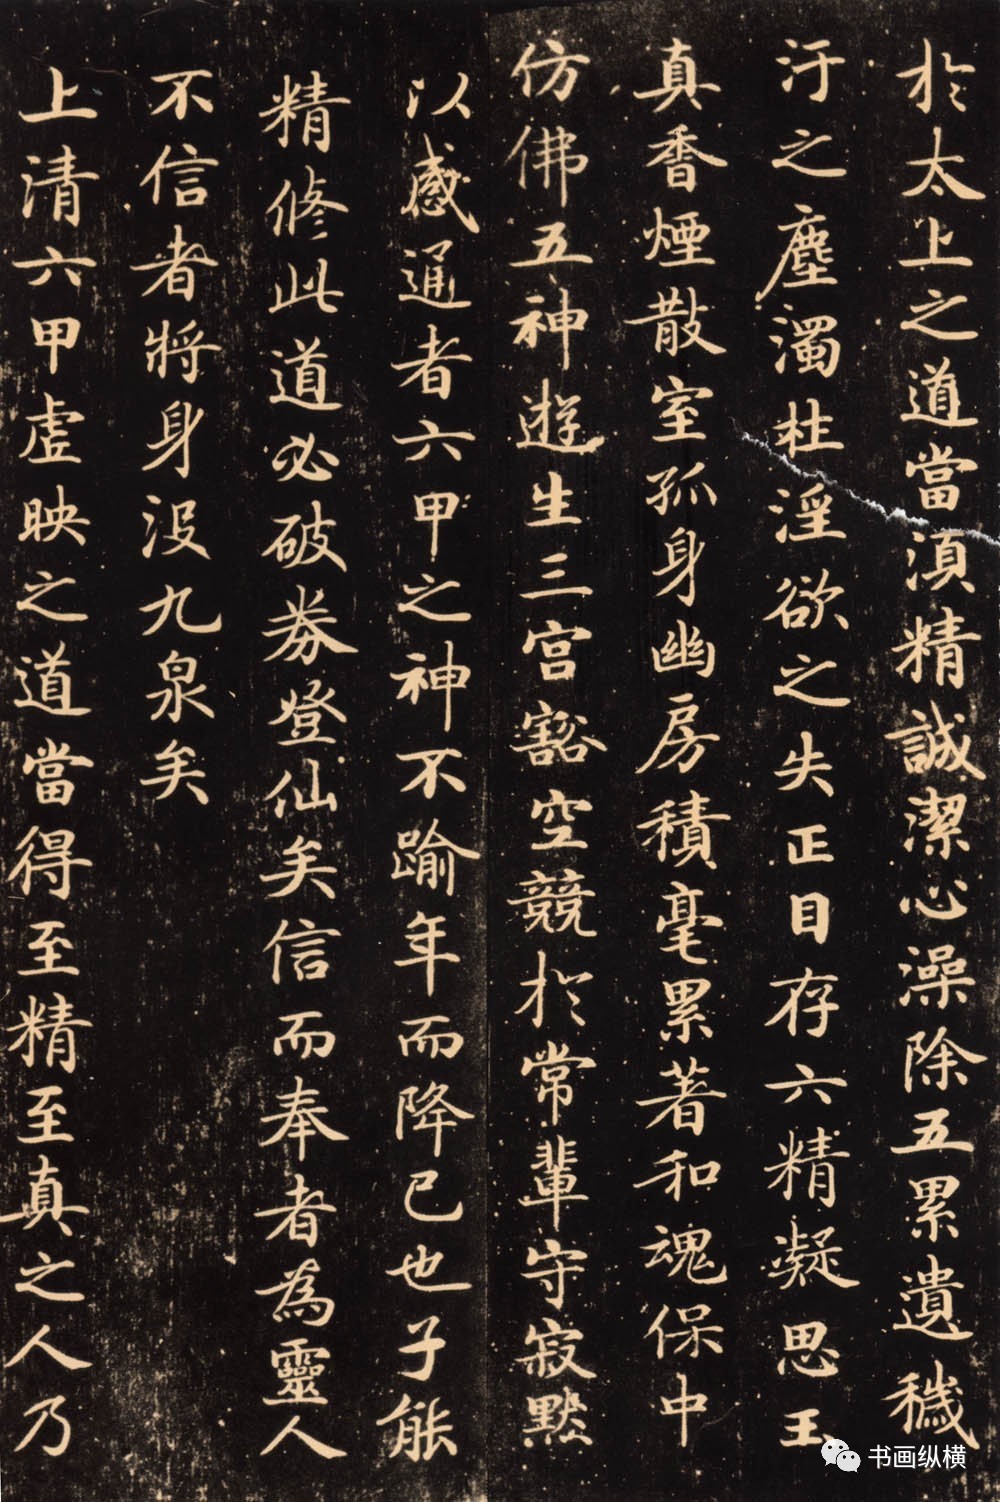 於太上之道當湏精誠潔心澡除五累遺穢
汙之塵濁杜淫欲之失正目存六精凝思玉
真香煙散室孤身幽房積毫累著和魂保中
仿佛五神遊生三宮豁空競於常輩守寂默
以感通者六甲之神不踰年而降已也子能
精修此道必破券登仙矣信而奉者為靈人
不信者將身沒九泉矣
上清六甲虛映之道當得至精至真之人乃
书画纵横